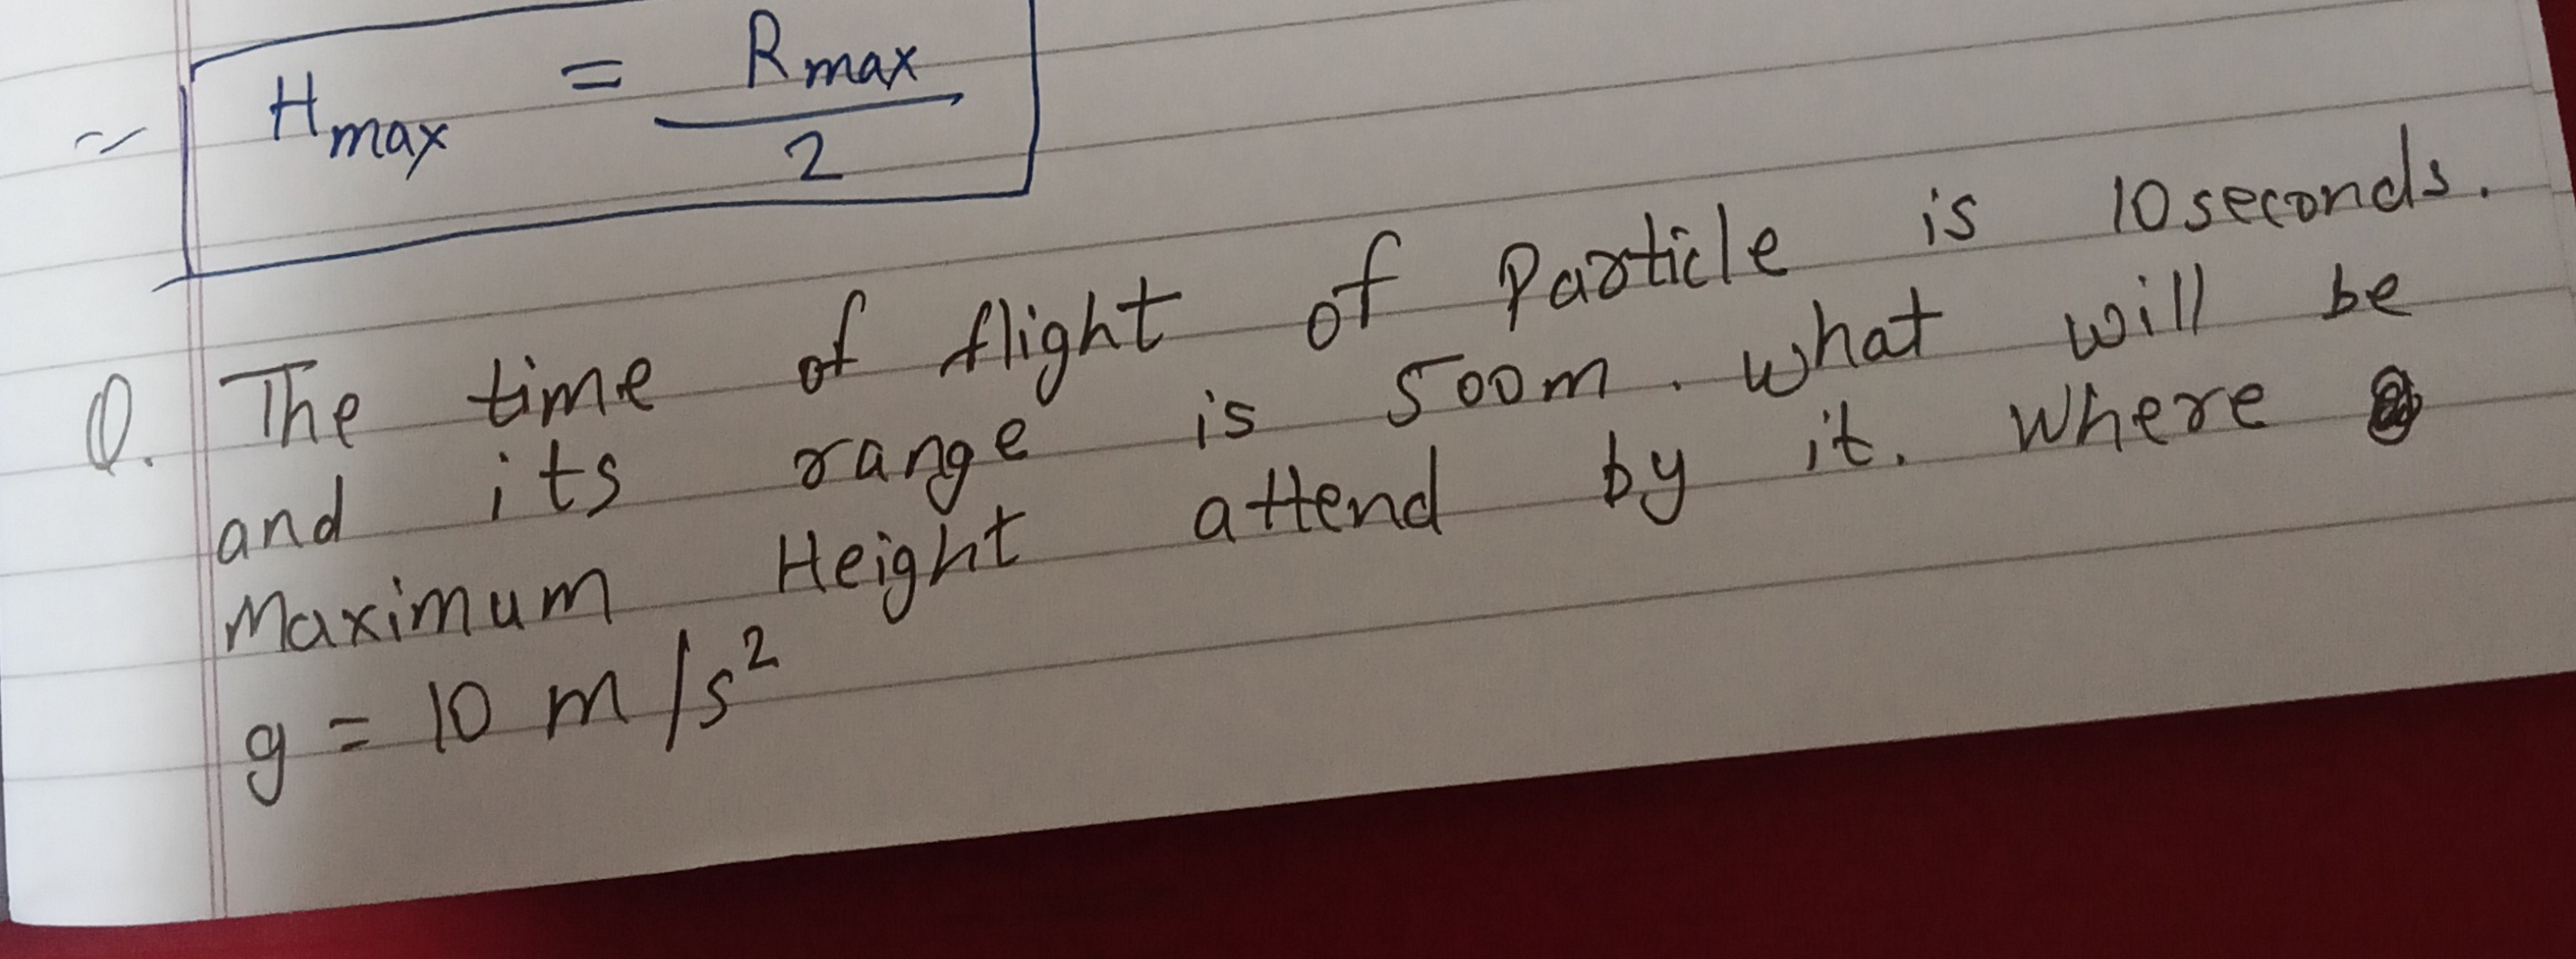 ~ Hmax = Rmax / 2
Q. The time of flight of Particle is 10 seconds.
and its range is 500m. what will be
Maximum Height attend by it. Where
g = 10 m/s²